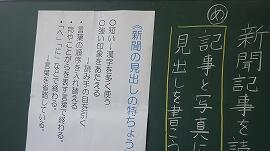 新聞記事を読
め
記事と写真に
見出しを書こう
《新聞の見出しの特ちょう
○短い→漢字を多く使う
○強い印象をあたえる
→読み手の目を引く
・言葉の順序を入れ替える
・物やことがらを表す言葉で終わる。
・「へ」「に」などで終わる。
→言葉を省略している。